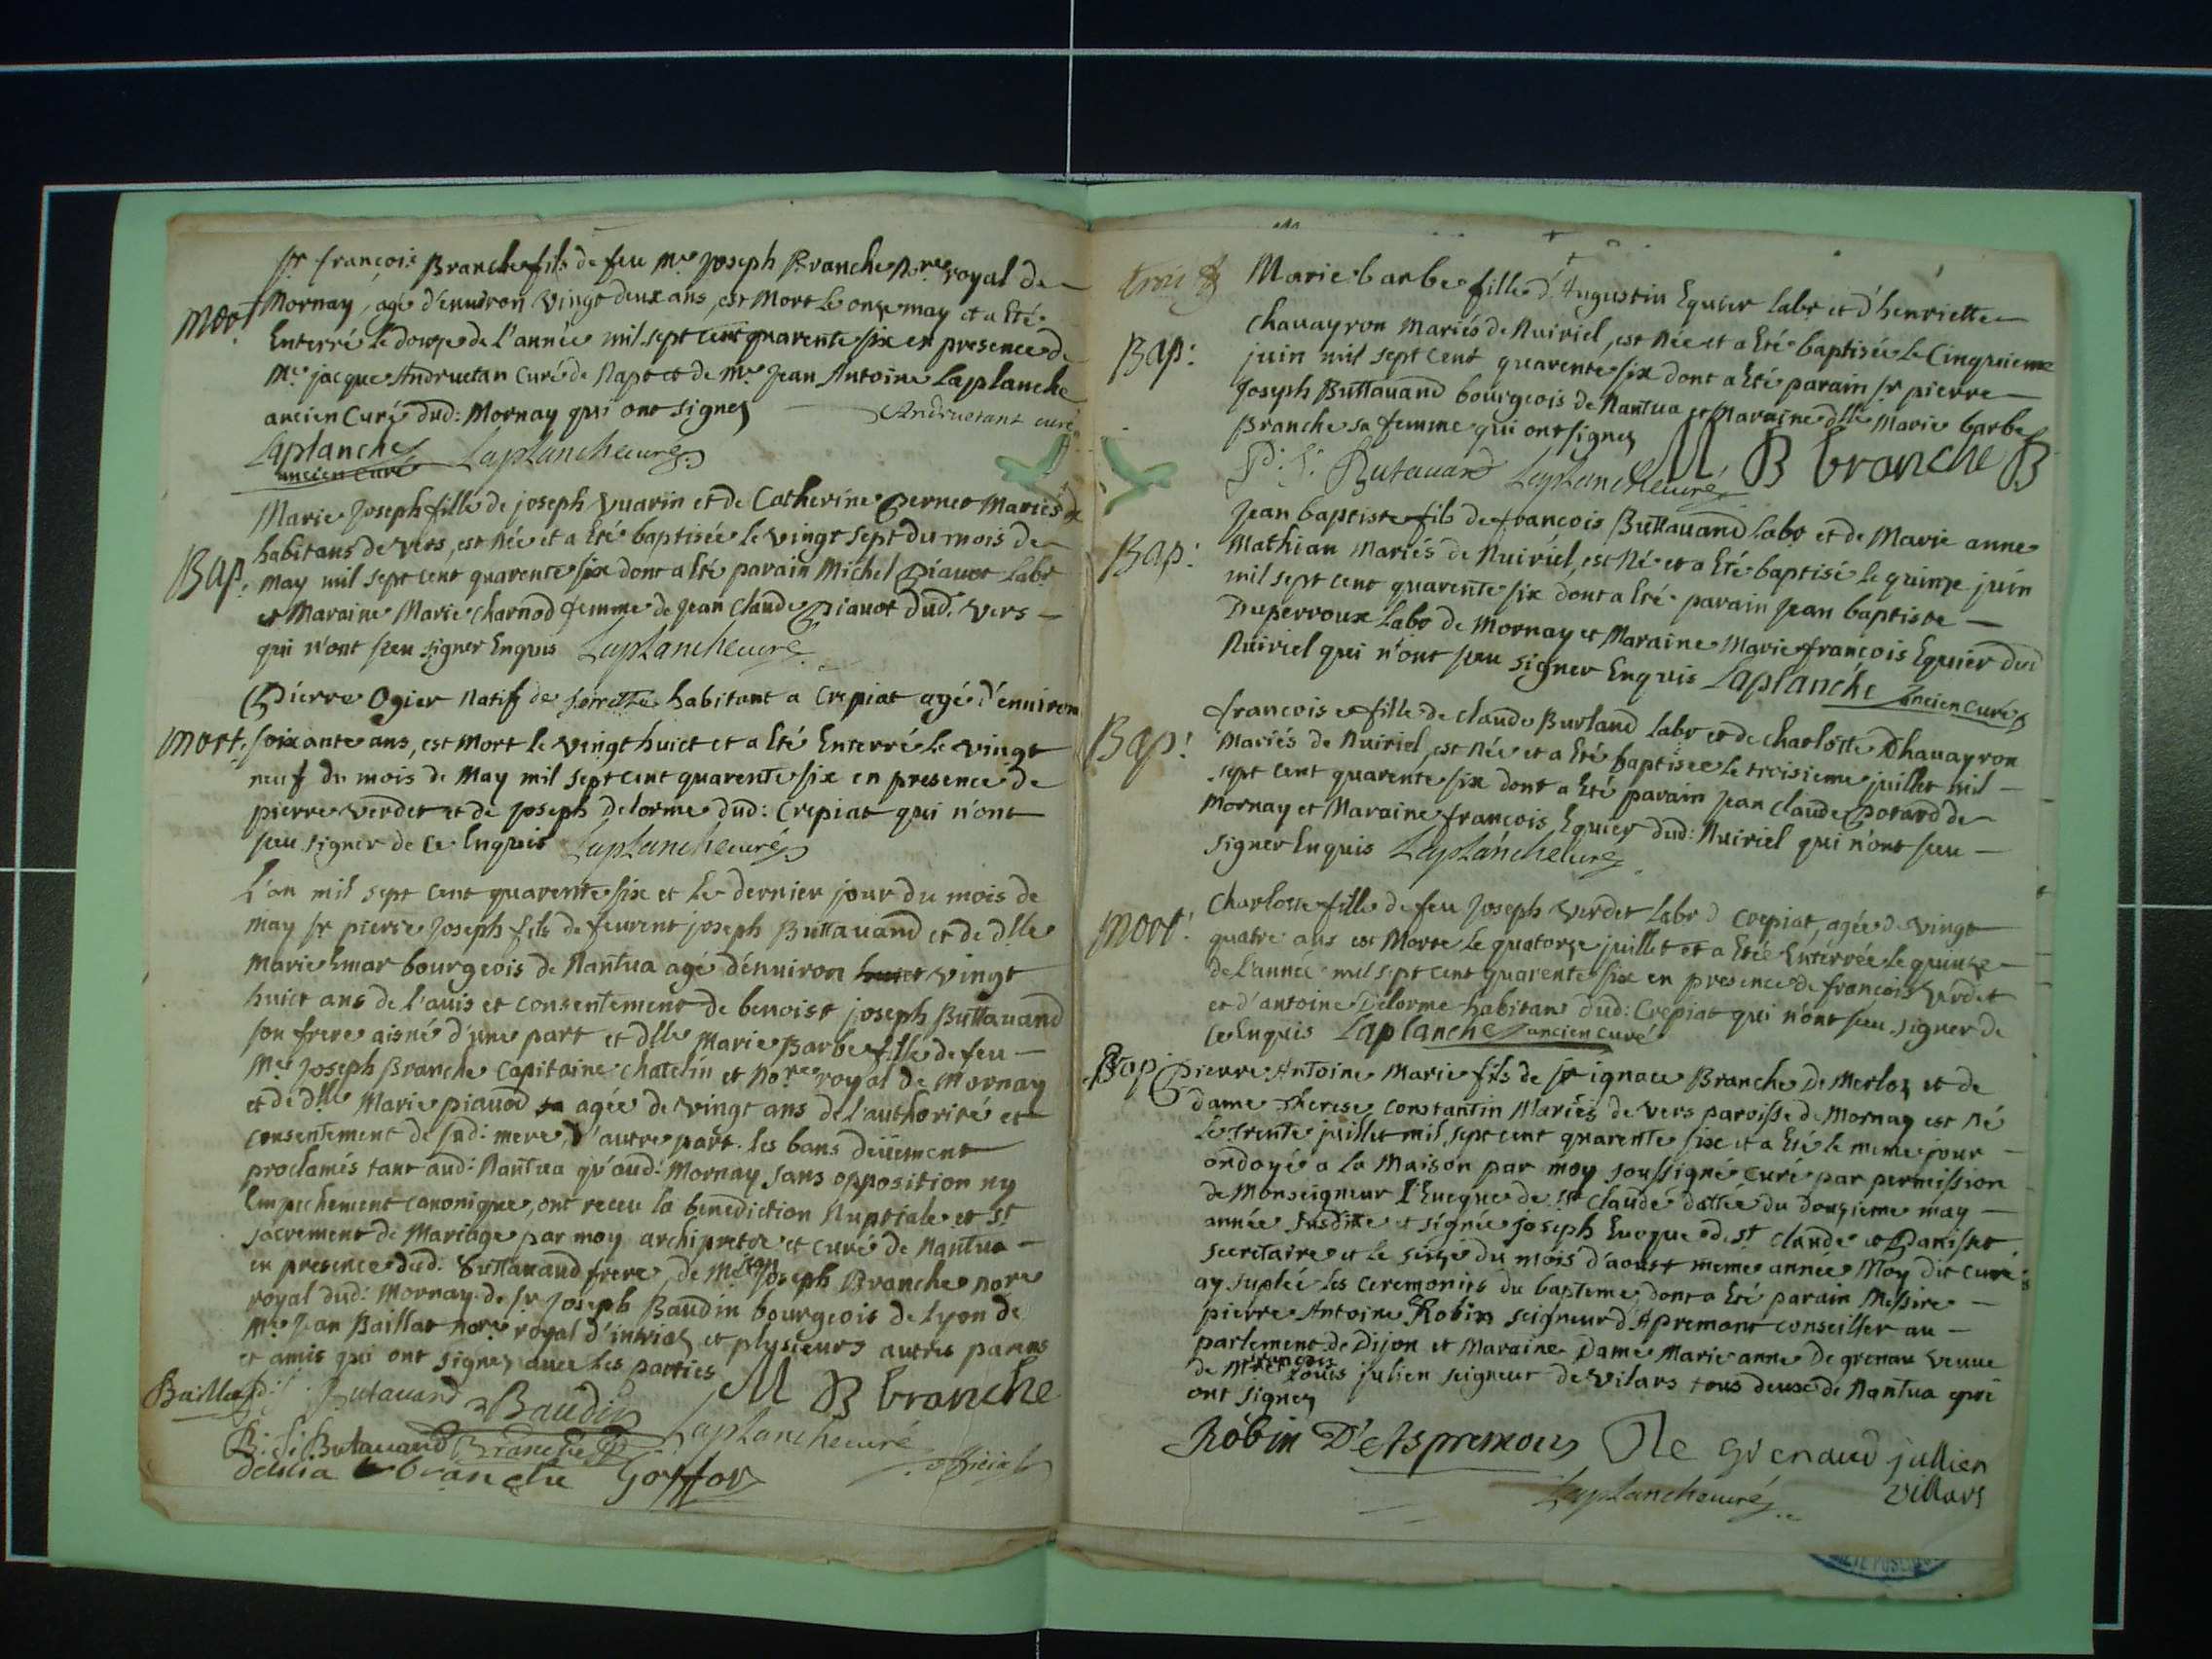 Sr françois Branche fils de feu Me Joseph Branche nore royal de
Mort Mornay, agé d'enuiron vingt deux ans, est Mort le onze may et a Eté
Enterré le douze de l'année mil sept cent quarente six en presence de
Me jacque Andruetan Curé de Napt et de Me Jean Antoine Laplanche
ancien Curé dud: Mornay qui ont signez Andruetant curé
Laplanche Laplanche curé
ancien curé
Marie Joseph fille de joseph Vuarin et de Catherine Pernet Mariés et
habitans de Vers, est Née et a Eté baptisée le vingt sept du mois de
Bap: May mil sept cent quarente six dont a Eté parain Michel Piauot Labr
et Maraine Marie Charnod femme de Jean Claude Piauot dud. Vers
qui n'ont sceu signer Enquis Laplanche curé
Pierre Ogier Natif de habitant a Crepiat agé d'enuiron
Mort: soixante ans, est Mort le vingt huict et a Eté Enterré le vingt
neuf du mois de May mil sept cent quarente six en presence de
pierre Verdet et de Joseph Delorme dud: Crepiat qui n'ont
sceu signer de ce Enquis Laplanche curé
L'an mil sept cent quarente six et le dernier jour du mois de
may Sr pierre Joseph fils de feu joseph Buttauand et de dlle
Marie Emar bourgeois de Nantua agé d'enuiron vingt
huict ans de l'auis et consentement de benoist joseph Buttauand
son frere aisné d'une part et dlle Marie Barbe fille de feu
Me Joseph Branche Capitaine chatelin et nore royal de Mornay
et de dlle Marie piauod agée de vingt ans de l'authorité et
consentement de sad: mere, d'autre part. les bans deüement
proclamés tant aud: Nantua qu'aud: Mornay sans opposition ny
Empechement canonique, ont receu la benediction Nuptiale et St
sacrement de Mariage par moy archipretre et curé de Nantua
en presence dud: Buttauand frere, de Me Joseph Branche nore
royal dud: Mornay de Sr Joseph Baudin bourgeois de Lyon de
Me Jean Baillat nore royal d'intriat et plysieurs autres parens
et amis qui ont signez auec les parties M B branche
Baillat Butauand Baudin Laplanche curé
B: J: Butauand Branche official
delilia branche Goiffon
Marie barbe fille d'Augustin Equier labr et d'henriette
Chauayron Mariés de Nuiriel, est Née et a Eté baptisée le Cinquieme
Bap: juin mil sept cent quarente six dont a Eté parain Sr pierre
Joseph Buttauand bourgeois de Nantua et Maraine dlle Marie barbe
Branche sa femme qui ont signez M B branche B
P: J: Butauand Laplanche curé
Jean baptiste fils de françois Buttauand Labr et de Marie anne
Bap: Mathian Mariés de Nuiriel, est Né et a Eté baptisé le quinze juin
mil sept cent quarente six dont a Eté parain Jean baptiste
Duperroux Labr de Mornay et Maraine Marie françois Equier dud
Nuiriel qui n'ont sceu signer Enquis Laplanche ancien curé
françoise fille de Claude Burland labr et de charlotte Chauayron
Bap: Mariés de Nuiriel, est Née et a Eté baptisée le troisieme juillet mil
sept cent quarente six dont a Eté parain Jean Claude Potard de
Mornay et Maraine françois Equier dud: Nuiriel qui n'ont sceu
signer Enquis Laplanche curé
Charlotte fille de feu Joseph Verdet Labr d Crepiat, agée de vingt
Mort: quatre ans est Morte le quatorze juillet et a Etée Entérrée le quinze
de l'année mil sept cent quarente six en presence de françois Verdet
et d'antoine Delorme habitans dud: Crepiat qui n'ont sceu signer de
ce Enquis Laplanche ancien curé
Bap: Pierre Antoine Marie fils de Sr ignace Branche de Merloz et de
dame Therese Constantin Mariés de Vers paroisse de Mornay est Né
le trente juillet mil sept cent quarente six et a Eté le meme jour
ondoyé a la Maison par moy soussigné curé par permission
de Monseigneur l'Eueque de St Claude dattée du douzieme may
année susditte et signée joseph Eueque de St Claude et
secretaire et le seize du mois d'aoust meme année Moy dit curé
ay suplée les ceremonies du bapteme, dont a Eté parain Messire
pierre Antoine Robin seigneur d'Apremont conseiller au
parlement de Dijon et Maraine Dame Marie anne De grenau veuue
de Mre françois Louis julien seigneur de Vilars tous deux de Nantua qui
ont signez
Robin D'Aspremons De Grenaud jullien
Laplanche curé villars